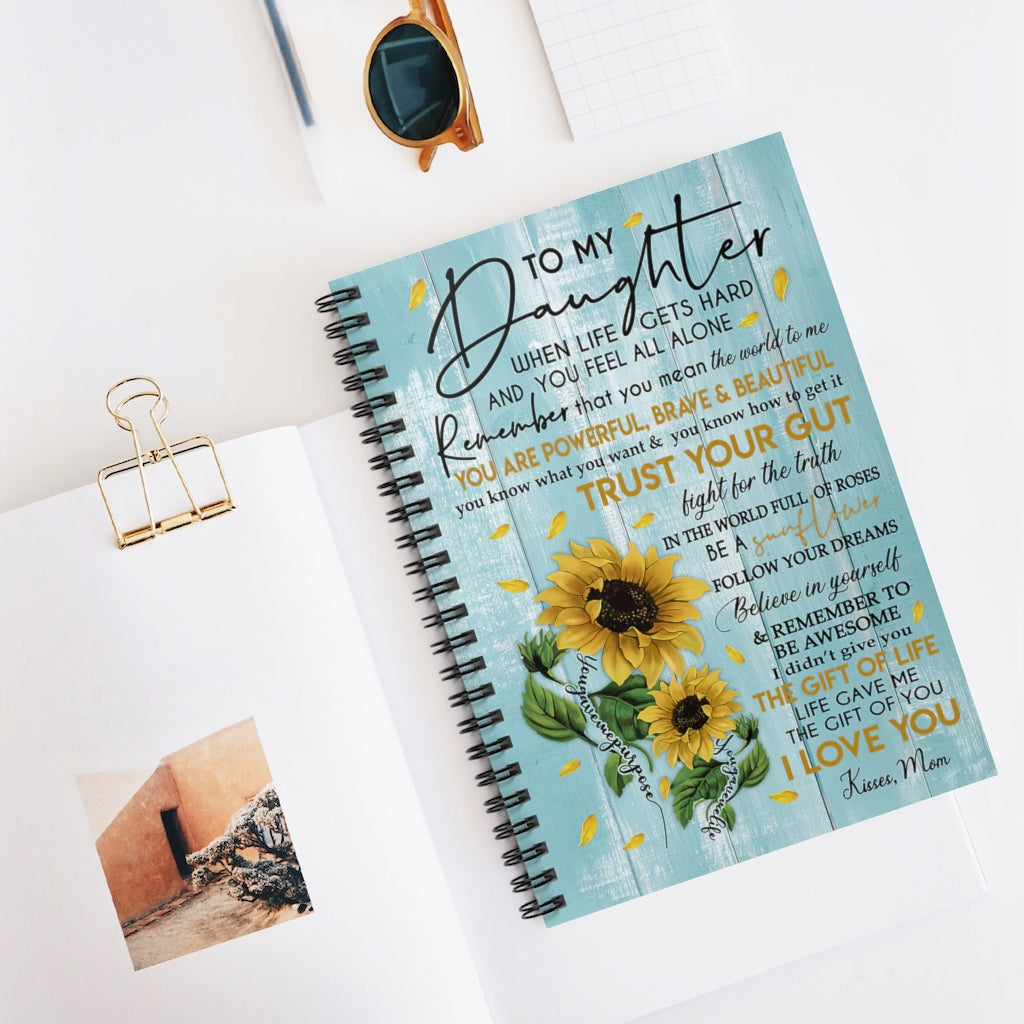 TO MY
Daughter
WHEN LIFE GETS HARD
AND YOU FEEL ALL ALONE
Remember that you mean the world to me
YOU ARE POWERFUL, BRAVE & BEAUTIFUL
you know what you want & you know how to get it
TRUST YOUR GUT
fight for the truth
IN THE WORLD FULL OF ROSES
BE A sunflower
FOLLOW YOUR DREAMS
Believe in yourself
& REMEMBER TO
BE AWESOME
I didn't give you
THE GIFT OF LIFE
LIFE GAVE ME
THE GIFT OF YOU
I LOVE YOU
Kisses, Mom
Yougavemepurpose
Yougavemelife